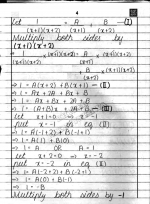 Let 1/((x+1)(x+2)) = A/(x+1) + B/(x+2) — (I)
Multiply both sides by
(x+1)(x+2)
⇒ 1 = A(x+2) + B(x+1) — (II)
⇒ 1 = Ax + 2A + Bx + B
⇒ 1 = Ax + Bx + 2A + B
⇒ 1 = (A+B)x + 2A + B — (III)
Let x+1=0 ⇒ x=-1
put x=-1 in eq (II)
⇒ 1 = A(-1+2) + B(-1+1)
⇒ 1 = A(1) + B(0)
⇒ 1 = A OR A = 1
Let x+2=0 ⇒ x=-2
put x=-2 in eq (II)
⇒ 1 = A(-2+2) + B(-2+1)
⇒ 1 = A(0) + B(-1)
⇒ 1 = -B
Multiply both sides by -1